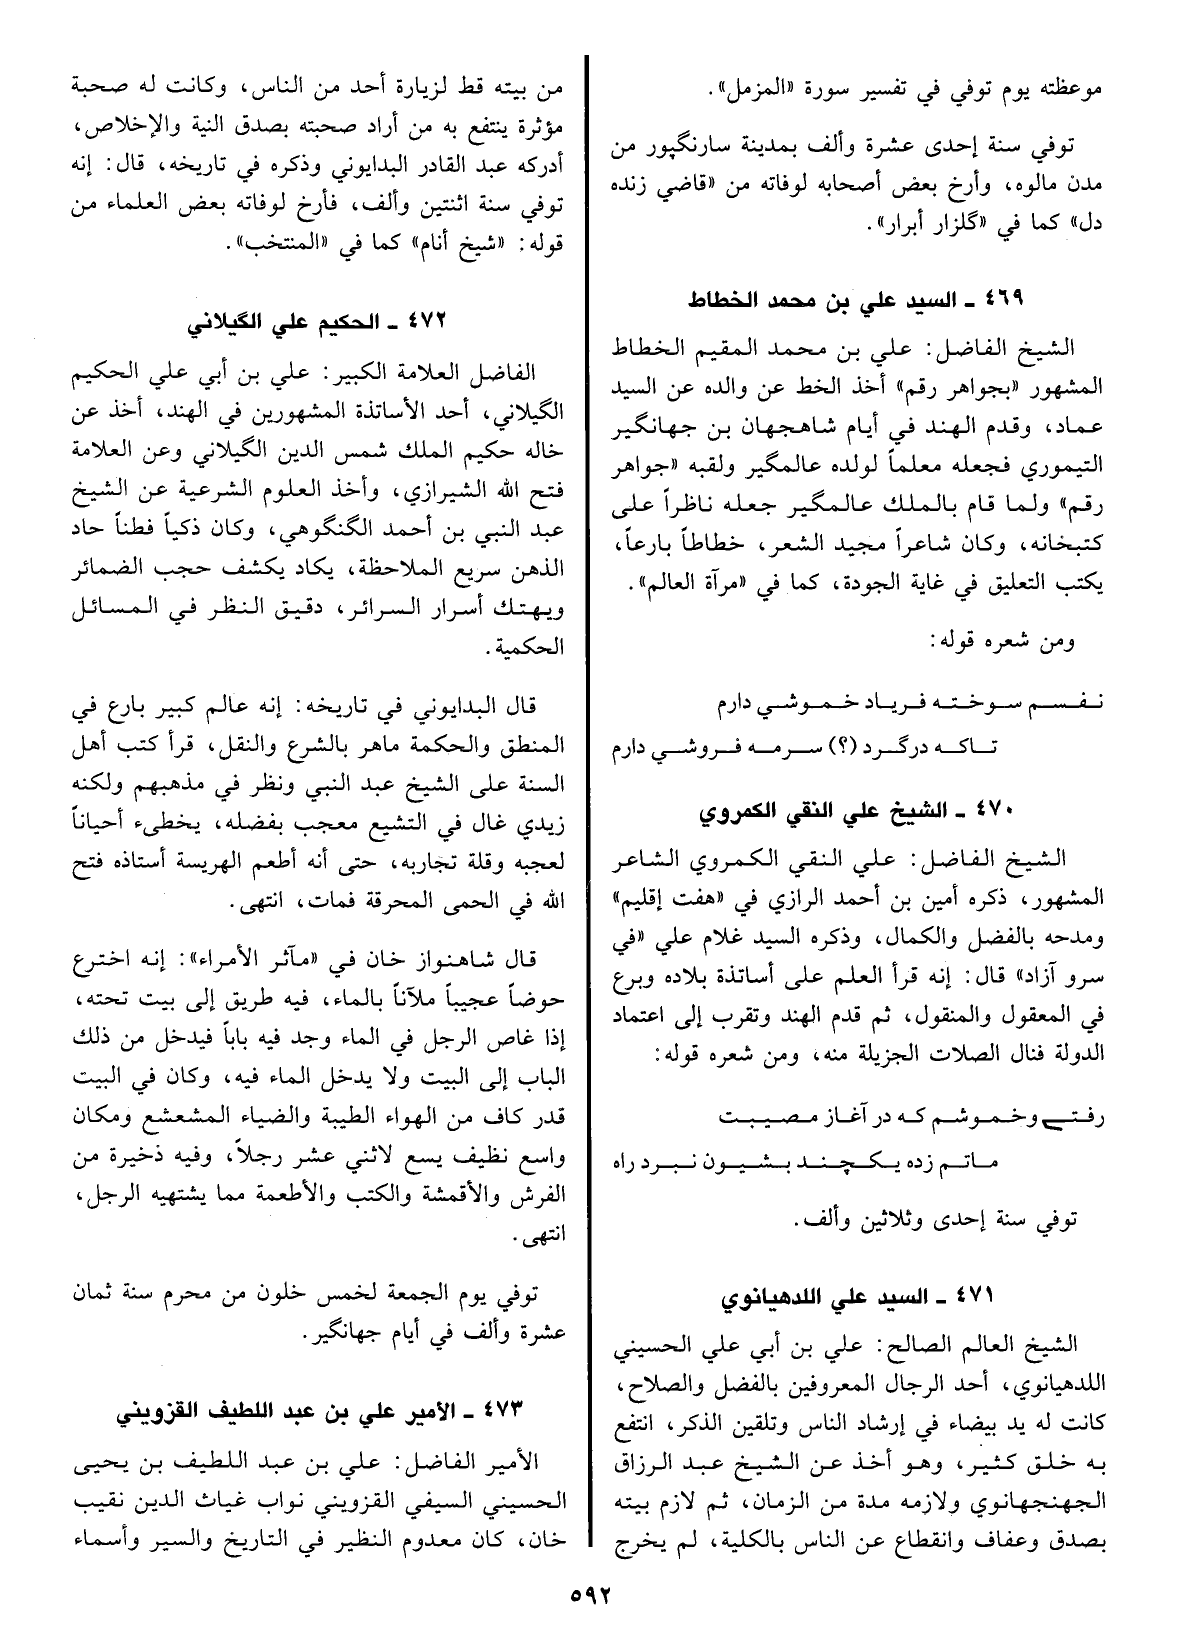 موعظته يوم توفي في تفسير سورة «المزمل».
توفي سنة إحدى عشرة وألف بمدينة سارنگپور من
مدن مالوه، وأرخ بعض أصحابه لوفاته من «قاضي زنده
دل» كما في «گلزار أبرار».
٤٦٩ ـ السيد علي بن محمد الخطاط
الشيخ الفاضل: علي بن محمد المقيم الخطاط
المشهور «بجواهر رقم» أخذ الخط عن والده عن السيد
عماد، وقدم الهند في أيام شاهجهان بن جهانگير
التيموري فجعله معلماً لولده عالمگير ولقبه «جواهر
رقم» ولما قام بالملك عالمگير جعله ناظراً على
كتبخانه، وكان شاعراً مجيد الشعر، خطاطاً بارعاً،
يكتب التعليق في غاية الجودة، كما في «مرآة العالم».
ومن شعره قوله:
نفسم سوخته فرياد خموشي دارم
تاكه درگرد (؟) سرمه فروشي دارم
٤٧٠ ـ الشيخ علي النقي الكمروي
الشيخ الفاضل: علي النقي الكمروي الشاعر
المشهور، ذكره أمين بن أحمد الرازي في «هفت إقليم»
ومدحه بالفضل والكمال، وذكره السيد غلام علي «في
سرو آزاد» قال: إنه قرأ العلم على أساتذة بلاده وبرع
في المعقول والمنقول، ثم قدم الهند وتقرب إلى اعتماد
الدولة فنال الصلات الجزيلة منه، ومن شعره قوله:
رفتي وخموشم كه در آغاز مصيبت
ماتم زده يكچند بشيون نبرد راه
توفي سنة إحدى وثلاثين وألف.
٤٧١ ـ السيد علي اللدهيانوي
الشيخ العالم الصالح: علي بن أبي علي الحسيني
اللدهيانوي، أحد الرجال المعروفين بالفضل والصلاح،
كانت له يد بيضاء في إرشاد الناس وتلقين الذكر، انتفع
به خلق كثير، وهو أخذ عن الشيخ عبد الرزاق
الجهنجهانوي ولازمه مدة من الزمان، ثم لازم بيته
بصدق وعفاف وانقطاع عن الناس بالكلية، لم يخرج
من بيته قط لزيارة أحد من الناس، وكانت له صحبة
مؤثرة ينتفع به من أراد صحبته بصدق النية والإخلاص،
أدركه عبد القادر البدايوني وذكره في تاريخه، قال: إنه
توفي سنة اثنتين وألف، فأرخ لوفاته بعض العلماء من
قوله: «شيخ أنام» كما في «المنتخب».
٤٧٢ ـ الحكيم علي الگيلاني
الفاضل العلامة الكبير: علي بن أبي علي الحكيم
الگيلاني، أحد الأساتذة المشهورين في الهند، أخذ عن
خاله حكيم الملك شمس الدين الگيلاني وعن العلامة
فتح الله الشيرازي، وأخذ العلوم الشرعية عن الشيخ
عبد النبي بن أحمد الگنگوهي، وكان ذكياً فطناً حاد
الذهن سريع الملاحظة، يكاد يكشف حجب الضمائر
ويهتك أسرار السرائر، دقيق النظر في المسائل
الحكمية.
قال البدايوني في تاريخه: إنه عالم كبير بارع في
المنطق والحكمة ماهر بالشرع والنقل، قرأ كتب أهل
السنة على الشيخ عبد النبي ونظر في مذهبهم ولكنه
زيدي غال في التشيع معجب بفضله، يخطىء أحياناً
لعجبه وقلة تجاربه، حتى أنه أطعم الهريسة أستاذه فتح
الله في الحمى المحرقة فمات، انتهى.
قال شاهنواز خان في «مآثر الأمراء»: إنه اخترع
حوضاً عجيباً ملآناً بالماء، فيه طريق إلى بيت تحته،
إذا غاص الرجل في الماء وجد فيه باباً فيدخل من ذلك
الباب إلى البيت ولا يدخل الماء فيه، وكان في البيت
قدر كاف من الهواء الطيبة والضياء المشعشع ومكان
واسع نظيف يسع لاثني عشر رجلاً، وفيه ذخيرة من
الفرش والأقمشة والكتب والأطعمة مما يشتهيه الرجل،
انتهى.
توفي يوم الجمعة لخمس خلون من محرم سنة ثمان
عشرة وألف في أيام جهانگير.
٤٧٣ ـ الأمير علي بن عبد اللطيف القزويني
الأمير الفاضل: علي بن عبد اللطيف بن يحيى
الحسيني السيفي القزويني نواب غياث الدين نقيب
خان، كان معدوم النظير في التاريخ والسير وأسماء
٥٩٢